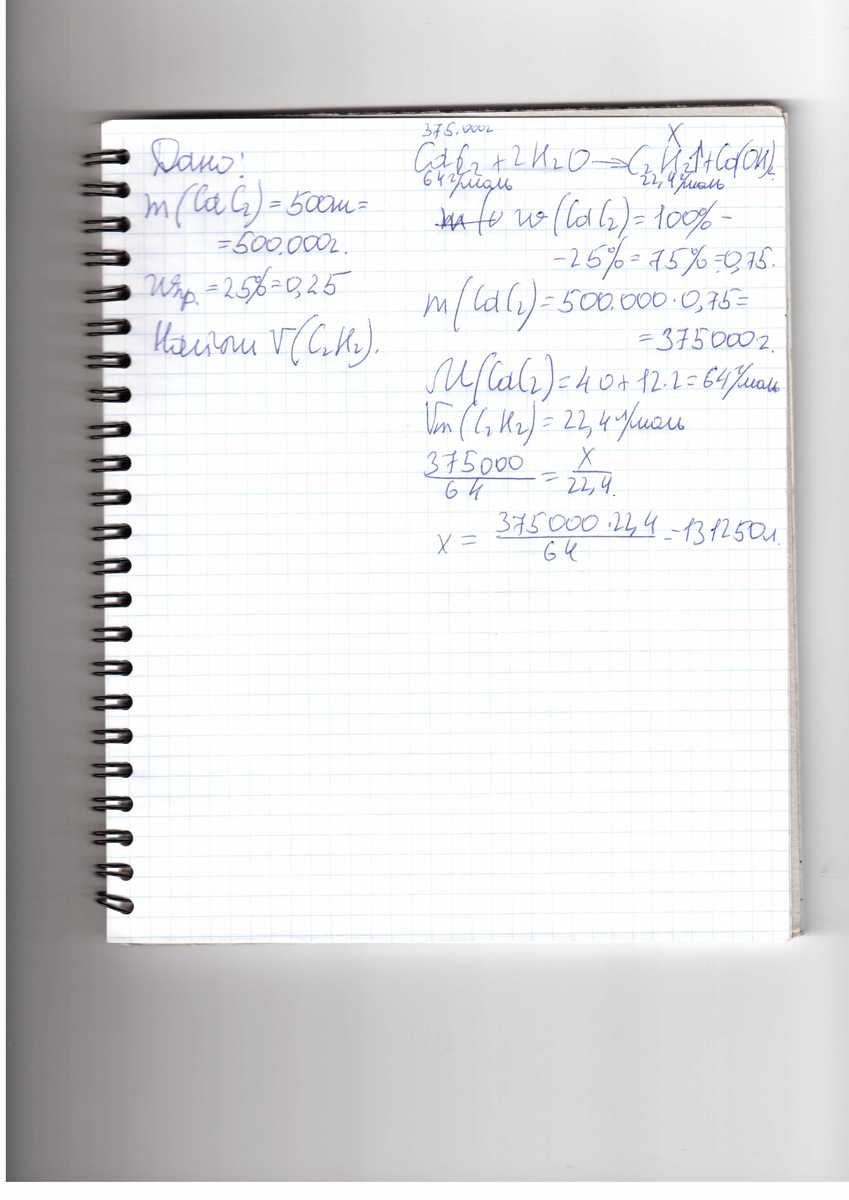 Дано:
m(CaC₂) = 500т =
= 500.000г.
wпр. = 25% = 0,25
Найти V(C₂H₂).
375.000г
X
CaC₂ + 2H₂O → C₂H₂↑ + Ca(OH)₂
64 г/моль
22,4 л/моль
w(CaC₂) = 100% -
- 25% = 75% = 0,75.
m(CaC₂) = 500.000 · 0,75 =
= 375000г.
M(CaC₂) = 40 + 12·2 = 64 г/моль
Vm(C₂H₂) = 22,4 л/моль
375000/64 = X/22,4.
x = 375000·22,4/64 = 131250л.